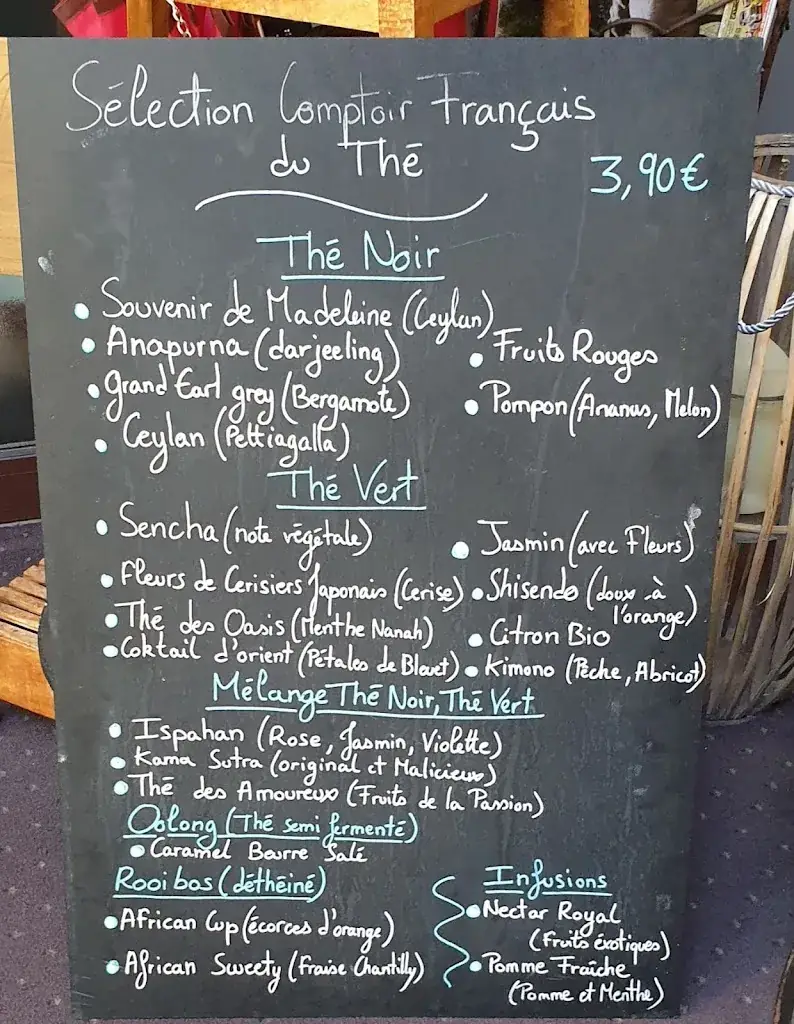 Sélection Comptoir Français
du Thé
3,90€
Thé Noir
• Souvenir de Madeleine (Ceylan)
• Anapurna (darjeeling)
• Grand Earl grey (Bergamote)
• Ceylan (Pettiagalla)
• Fruits Rouges
• Pompon (Ananas, Melon)
Thé Vert
• Sencha (note végétale)
• Fleurs de Cerisiers Japonais (Cerise)
• Thé des Oasis (Menthe Nanah)
• Coktail d'orient (Pétales de Bleuet)
• Jasmin (avec Fleurs)
• Shisendo (doux à
l'orange)
• Citron Bio
• Kimono (Pêche, Abricot)
Mélange Thé Noir, Thé Vert
• Ispahan (Rose, Jasmin, Violette)
• Kama Sutra (original et Malicieux)
• Thé des Amoureux (Fruits de la Passion)
Oolong (Thé semi fermenté)
• Caramel Beurre Salé
Rooibos (déthéiné)
• African Cup (écorces d'orange)
• African Sweety (Fraise Chantilly)
Infusions
• Nectar Royal
(Fruits éxotiques)
• Pomme Fraîche
(Pomme et Menthe)